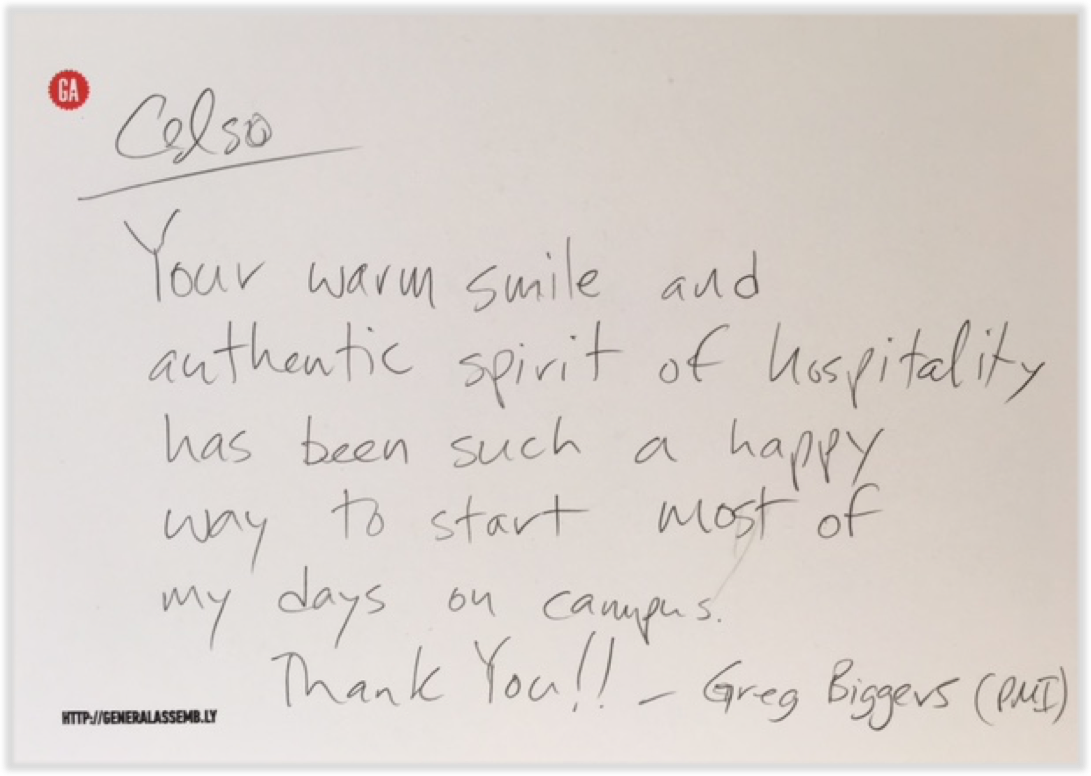 GA
Celso
Your warm smile and
authentic spirit of hospitality
has been such a happy
way to start most of
my days on campus.
Thank You!! – Greg Biggers (PMI)
HTTP://GENERALASSEMB.LY